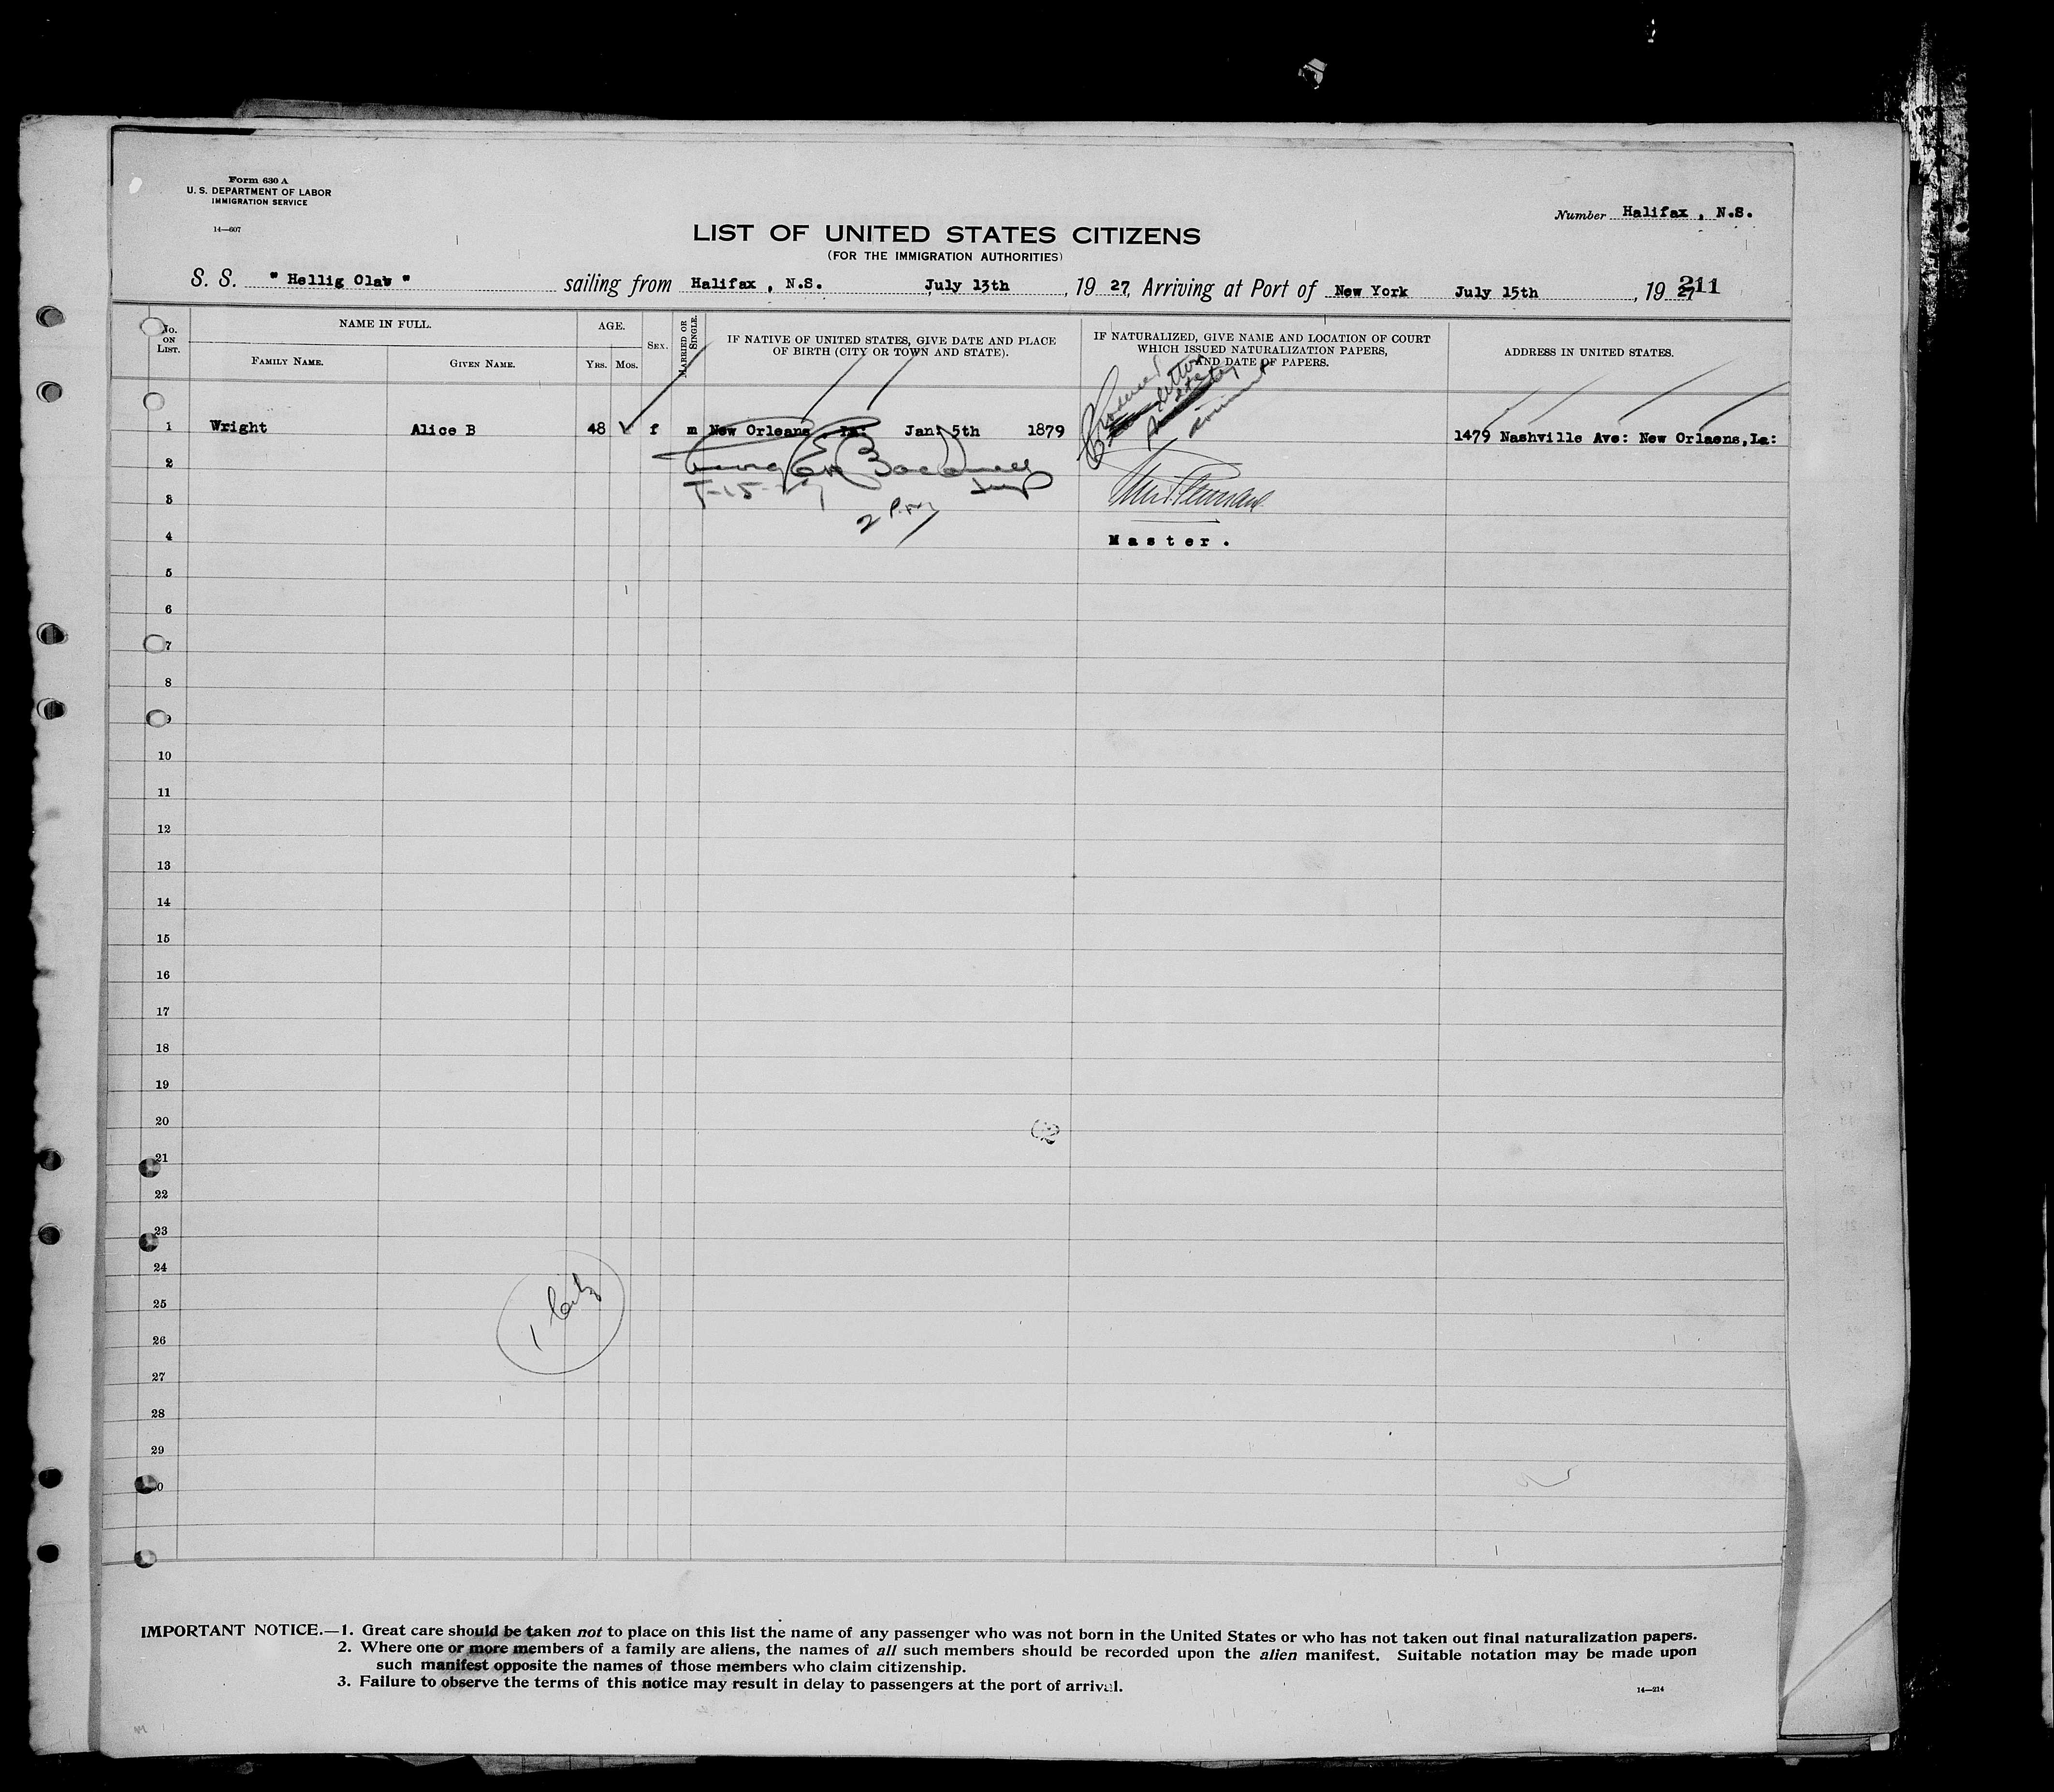 Form 630 A
U. S. DEPARTMENT OF LABOR
IMMIGRATION SERVICE
14—607
Number Halifax , N.S.
LIST OF UNITED STATES CITIZENS
(FOR THE IMMIGRATION AUTHORITIES)
S. S. " Hellig Olav " sailing from Halifax , N.S. July 13th , 19 27, Arriving at Port of New York July 15th , 19 27
211
No. ON LIST.
NAME IN FULL.
FAMILY NAME.
GIVEN NAME.
AGE.
YRS. MOS.
SEX.
MARRIED OR SINGLE.
IF NATIVE OF UNITED STATES, GIVE DATE AND PLACE
OF BIRTH (CITY OR TOWN AND STATE).
IF NATURALIZED, GIVE NAME AND LOCATION OF COURT
WHICH ISSUED NATURALIZATION PAPERS,
AND DATE OF PAPERS.
ADDRESS IN UNITED STATES.
1 Wright Alice B 48 f m New Orleans , La: Jan: 5th 1879 1479 Nashville Ave: New Orlaens,La:
2
3
4 Master .
5
6
7
8
9
10
11
12
13
14
15
16
17
18
19
20
21
22
23
24
25
26
27
28
29
IMPORTANT NOTICE.—1. Great care should be taken not to place on this list the name of any passenger who was not born in the United States or who has not taken out final naturalization papers.
2. Where one or more members of a family are aliens, the names of all such members should be recorded upon the alien manifest. Suitable notation may be made upon
such manifest opposite the names of those members who claim citizenship.
3. Failure to observe the terms of this notice may result in delay to passengers at the port of arrival.
14—214